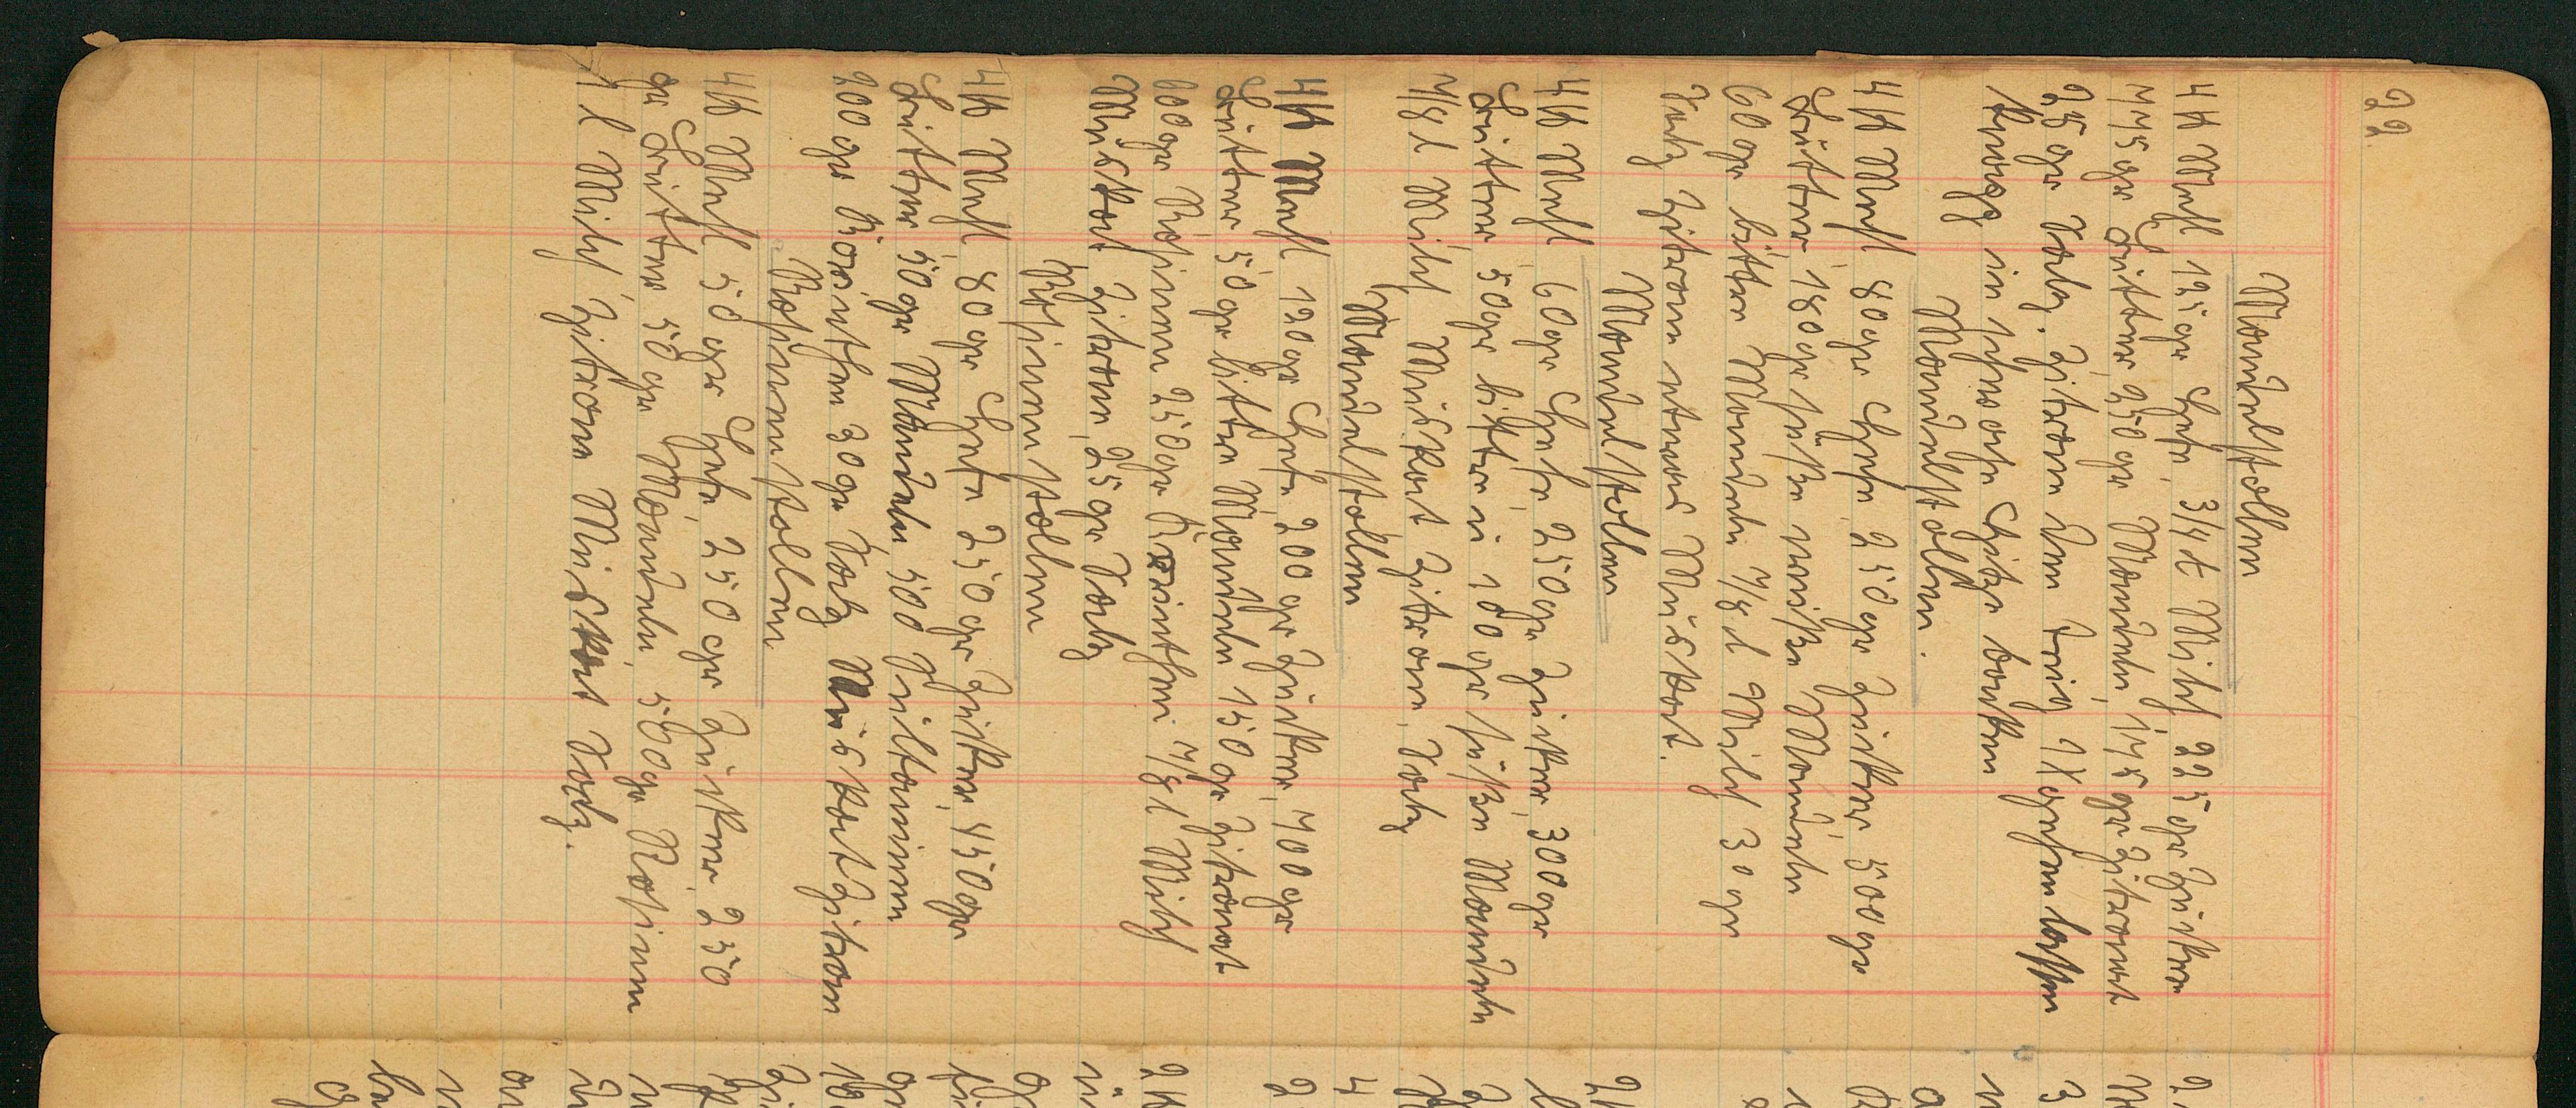 22.
Mandelstollen
4 ℔ Mehl 125 gr Hefe, 3/4 l Milch 225 gr Zucker
775 gr Butter, 250 gr Mandeln, 175 gr Zitronat
25 gr Salz. Zitrone den Teig 1 X gehen lassen
Knapp in schwache Hitze backen
Mandelstollen.
4 ℔ Mehl 80 gr Hefe 250 gr Zucker, 500 gr
Butter, 180 gr süße weiße Mandeln
60 gr bitter Mandeln 7/8 l Milch 30 gr
Salz Zitrone etwas Muskat.
Mandelstollen
4 ℔ Mehl, 60 gr Hefe, 250 gr Zucker, 300 gr
Butter, 50 gr bitter u 100 gr süßen Mandeln
7/8 l Milch Muskat Zitrone, Salz
Mandelstollen
4 ℔ Mehl 120 gr Hefe 200 gr Zucker, 700 gr
Butter 50 gr bitter Mandeln 150 gr Zitronat
600 gr Rosinen 250 gr Korinthen 7/8 l Milch
Muskat Zitrone, 25 gr Salz
Rosinenstollen
4 ℔ Mehl 80 gr Hefe 250 gr Zucker, 450 gr
Butter, 50 gr Mandeln, 500 Sultaninen
200 gr Korinthen 30 gr Salz Muskat Zitrone
Rosinenstollen
4 ℔ Mehl 50 gr Hefe 250 gr Zucker, 250
gr Butter 50 gr Mandeln, 500 gr Rosinen
1 l Milch, Zitrone Muskat Salz.